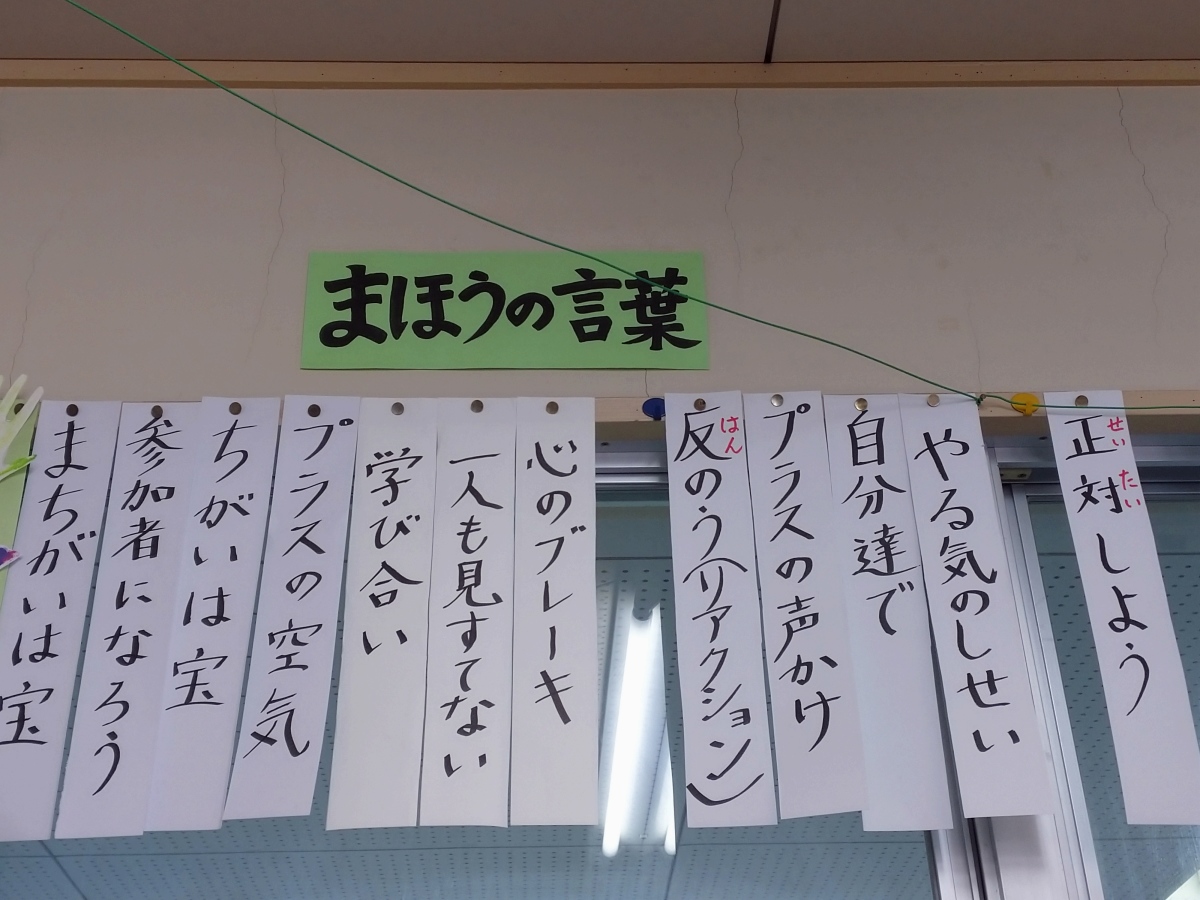 まほうの言葉
正対しよう
せい
たい
やる気のしせい
自分達で
プラスの声かけ
反のう(リアクション)
はん
心のブレーキ
一人も見すてない
学び合い
プラスの空気
ちがいは宝
参加者になろう
まちがいは宝